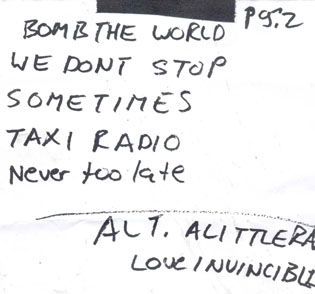 pg.2
BOMB THE WORLD
WE DONT STOP
SOMETIMES
TAXI RADIO
Never too late
ALT. ALITTLERA
LOVE INVINCIBLE